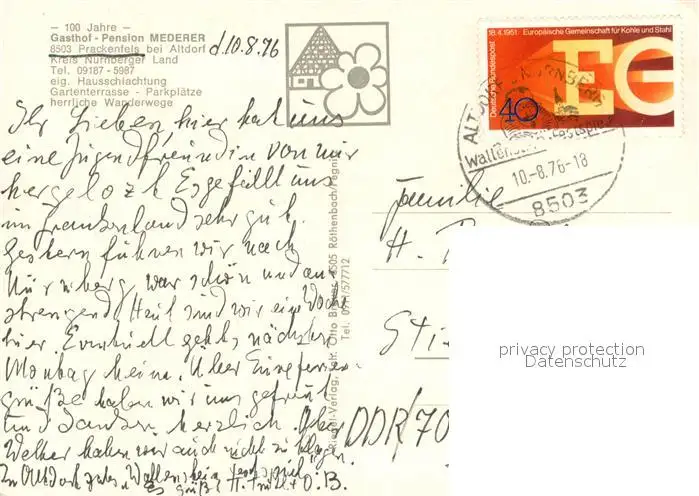 — 100 Jahre —
Gasthof - Pension MEDERER
8503 Prackenfels bei Altdorf
Kreis Nürnberger Land
Tel. 09187 - 5987
eig. Hausschlachtung
Gartenterrasse - Parkplätze
herrliche Wanderwege
d. 10.8.76
Ihr Lieben, hier hat uns
eine Jugendfreundin von mir
hergelozt. Es gefällt uns
im Frankenland sehr gut.
Gestern fuhren wir nach
Nürnberg, war schön und an-
strengend. Heut sind wir eine Woche
hier. Eventuell geht's nächsten
Montag heim. Über Eure Ferien-
grüße haben wir uns gefreut
und danken herzlich. Über
Wetter haben wir auch nicht zu klagen.
In Altdorf Wallenstein Festspiel
O.B.
Riegel-Verlag, Otto 8505 Röthenbach/Pegnitz
Tel. 577712
18.4.1951 Europäische Gemeinschaft für Kohle und Stahl
Deutsche Bundespost
40
EG
ALTDORF B. NÜRNBERG
10.-8.76-18
8503
Familie
H.
DDR/70
privacy protection
Datenschutz